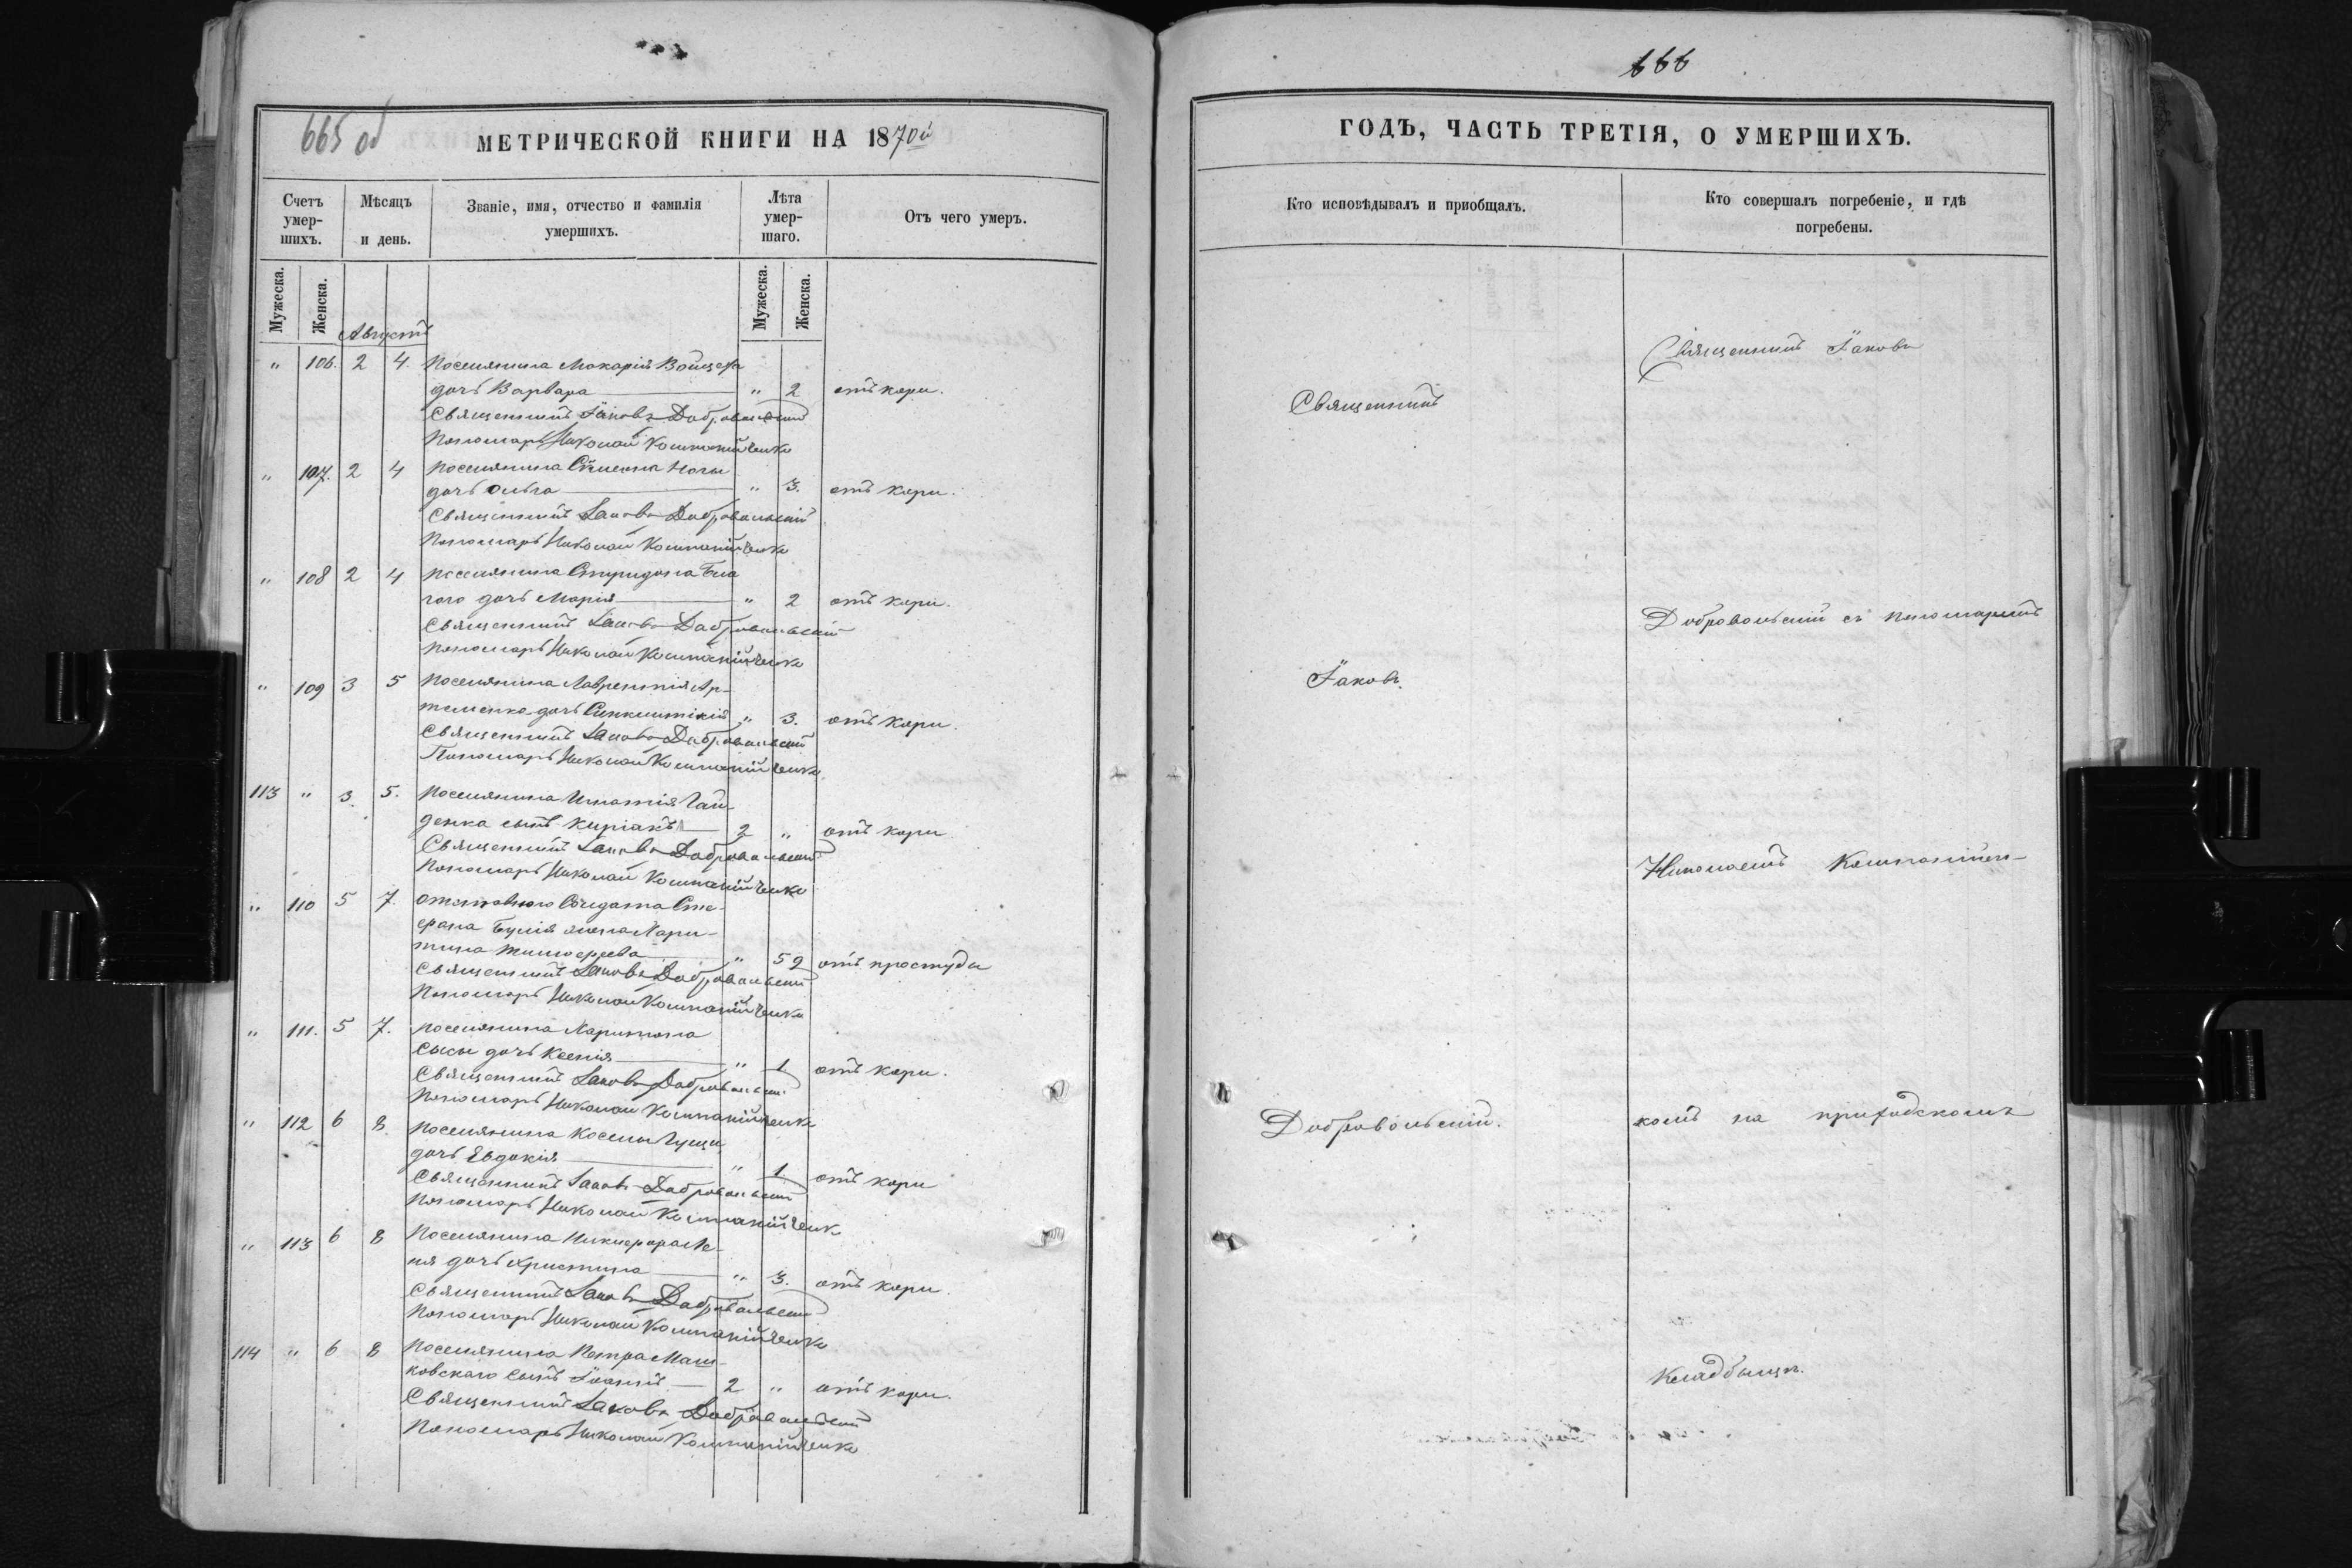 665 об
МЕТРИЧЕСКОЙ КНИГИ НА 1870й
Счетъ умер-шихъ.
Мѣсяцъ и день.
Званіе, имя, отчество и фамилія умершихъ.
Лѣта умер-шаго.
Отъ чего умеръ.
Мужеска.
Женска.
Мужеска.
Женска.
Августъ
" 106. 2 4. Поселянина Макарія
дочь Варвара " 2 отъ кори.
Священникъ Іаковъ Добровольскій
Пономарь Николай Компанійченко
" 107. 2 4 Поселянина Симеона Ногы
дочь Ольга " 3. отъ кори.
Священникъ Іаковъ Добровольскій
Пономарь Николай Компанійченко
" 108 2 4 Поселянина Спиридона Бѣла
гого дочь Марія " 2 отъ кори.
Священникъ Іаковъ Добровольскій
Пономарь Николай Компанійченко
" 109 3 5 Поселянина Лаврентія Ар-
теменка дочь " 3. отъ кори.
Священникъ Іаковъ Добровольскій
Пономарь Николай Компанійченко
113 " 3. 5. Поселянина Игнатія Гай-
денка сынъ Киріакъ 2 " отъ кори
Священникъ Іаковъ Добровольскій
Пономарь Николай Компанійченко
" 110 5 7. отставного Солдата Сте-
фана жена Хари-
тина Тимофеева " 52 отъ простуды
Священникъ Іаковъ Добровольскій
Пономарь Николай Компанійченко
" 111. 5 7. Поселянина Харитона
Сысы дочь Ксенія " 1 отъ кори.
Священникъ Іаковъ Добровольскій
Пономарь Николай Компанійченко
" 112 6 8. Поселянина Косьмы Гущи
дочь Евдокія " 1. отъ кори
Священникъ Іаковъ Добровольскій
Пономарь Николай Компанійченко
" 113 6 8 Поселянина Никифора Ле-
ня дочь Христина " 3. отъ кори.
Священникъ Іаковъ Добровольскій
Пономарь Николай Компанійченко
114 " 6 8 Поселянина Петра Маш-
ковскаго сынъ Іоаннъ 2 " отъ кори.
Священникъ Іаковъ Добровольскій
Пономарь Николай Компанійченко
666
ГОДЪ, ЧАСТЬ ТРЕТІЯ, О УМЕРШИХЪ.
Кто исповѣдывалъ и приобщалъ.
Кто совершалъ погребеніе, и гдѣ погребены.
Священникъ
Іаковъ
Добровольскій.
Священникъ Іаковъ
Добровольскій съ пономаремъ
Николаемъ Компанійчен-
комъ на приходскомъ
кладбищѣ.